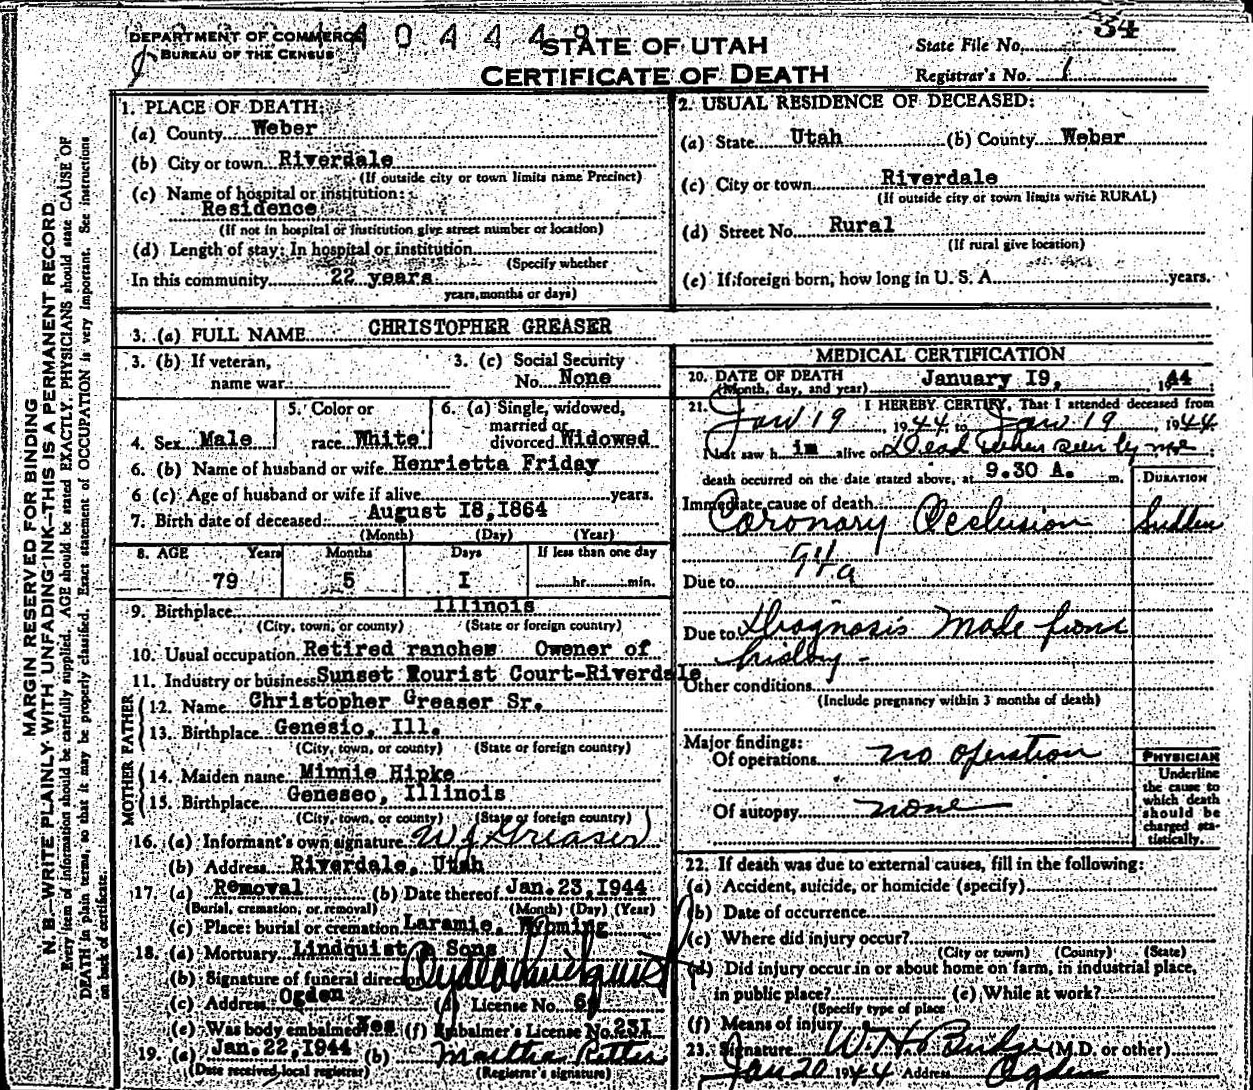 DEPARTMENT OF COMMERCE
BUREAU OF THE CENSUS
STATE OF UTAH
CERTIFICATE OF DEATH
State File No. 34
Registrar's No. 1
MARGIN RESERVED FOR BINDING
N. B.—WRITE PLAINLY WITH UNFADING INK—THIS IS A PERMANENT RECORD
Every item of information should be carefully supplied. AGE should be stated EXACTLY. PHYSICIANS should state CAUSE OF
DEATH in plain terms, so that it may be properly classified. Exact statement of OCCUPATION is very important. See instructions
on back of certificate.
1. PLACE OF DEATH:
(a) County Weber
(b) City or town Riverdale
(If outside city or town limits name Precinct)
(c) Name of hospital or institution:
Residence
(If not in hospital or institution give street number or location)
(d) Length of stay: In hospital or institution
(Specify whether
In this community 22 years
years, months or days)
2. USUAL RESIDENCE OF DECEASED:
(a) State Utah (b) County Weber
(c) City or town Riverdale
(If outside city or town limits write RURAL)
(d) Street No. Rural
(If rural give location)
(e) If foreign born, how long in U. S. A. years.
3. (a) FULL NAME CHRISTOPHER GREASER
3. (b) If veteran,
name war
3. (c) Social Security
No. None
4. Sex Male
5. Color or
race White
6. (a) Single, widowed,
married or
divorced Widowed
6. (b) Name of husband or wife Henrietta Friday
6 (c) Age of husband or wife if alive years.
7. Birth date of deceased: August I8,I864
(Month) (Day) (Year)
8. AGE Years Months Days If less than one day
79 5 I hr. min.
9. Birthplace Illinois
(City, town, or county) (State or foreign country)
10. Usual occupation Retired rancher Owener of
11. Industry or business Sunset Tourist Court-Riverdale
FATHER
12. Name Christopher Greaser Sr.
13. Birthplace Genesio, Ill.
(City, town, or county) (State or foreign country)
MOTHER
14. Maiden name Minnie Hipke
15. Birthplace Geneseo, Illinois
(City, town, or county) (State or foreign country)
16. (a) Informant's own signature W J Greaser
(b) Address Riverdale, Utah
17. (a) Removal (b) Date thereof Jan.23,I944
(Burial, cremation, or removal) (Month) (Day) (Year)
(c) Place: burial or cremation Laramie, Wyoming
18. (a) Mortuary Lindquist & Sons
(b) Signature of funeral director
(c) Address Ogden (d) License No.
(e) Was body embalmed Yes (f) Embalmer's License No. 23I
19. (a) Jan.22,I944 (b) Martha Ritter
(Date received local registrar) (Registrar's signature)
MEDICAL CERTIFICATION
20. DATE OF DEATH
(Month, day, and year) January I9, 1944
21. I HEREBY CERTIFY, That I attended deceased from
Jan 19, 1944, to Jan 19 1944
last saw h im alive on Dead when seen by me
death occurred on the date stated above, at 9.30 A. m.
DURATION
Immediate cause of death
Coronary Occlusion Sudden
94a
Due to
Due to Diagnosis made from
history -
Other conditions
(Include pregnancy within 3 months of death)
Major findings:
Of operations no operation
Of autopsy none
PHYSICIAN
Underline
the cause to
which death
should be
charged sta-
tistically.
22. If death was due to external causes, fill in the following:
(a) Accident, suicide, or homicide (specify)
(b) Date of occurrence
(c) Where did injury occur?
(City or town) (County) (State)
(d) Did injury occur in or about home on farm, in industrial place,
in public place? (e) While at work?
(Specify type of place
(f) Means of injury
23. Signature W. H. Budge (M.D. or other)
Jan 20 1944 Address Ogden